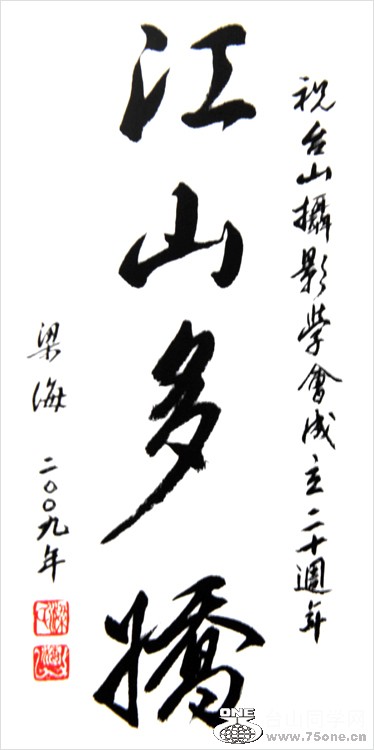 祝台山攝影學會成立二十週年
江山多嬌
梁海 二〇〇九年
ONE
台山同学网
www.75one.cn